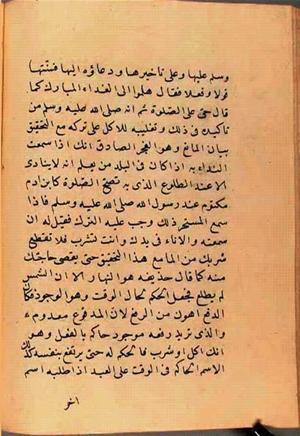 وسلم عليها وعلى تاخيرها ودعاؤه اليها فسنتها
قولا وفعلا فقال هلموا الى الغداء المبارك كما
قال حى على الصلوة ثم انه صلى الله عليه وسلم من
تاكيده فى ذلك وتغليبه للاكل على تركه مع التحقيق
ببيان المانع وهو الفجر الصادق انك اذا سمعت
النداء به اذا كان فى البلد من يعلم انه لا ينادى
الا عند الطلوع الذى به تصح الصلوة كابن ام
مكتوم عند رسول الله صلى الله عليه وسلم فاذا
سمع المتسحر ذلك وجب عليه الترك فقيل له ان
سمعته والاناء فى يدك وانت تشرب فلا تقطع
شربك من المانع هذا التحقيق حتى يقضى حاجتك
منه كما قال حذيفة هو النهار الا ان الشمس
لم يطلع فجعل الحكم لحال الوقت وهو الوجود فكا
الدفع اهون من الرفع لان المدفوع معدوم
والذى تريد رفعه موجود حاكم بالفعل وهو
انك اكل او شرب فالحكم له حتى يرتفع بنفسه كذلك
الاسم الحاكم فى الوقت على العبد اذا طلبه اسم
اخر